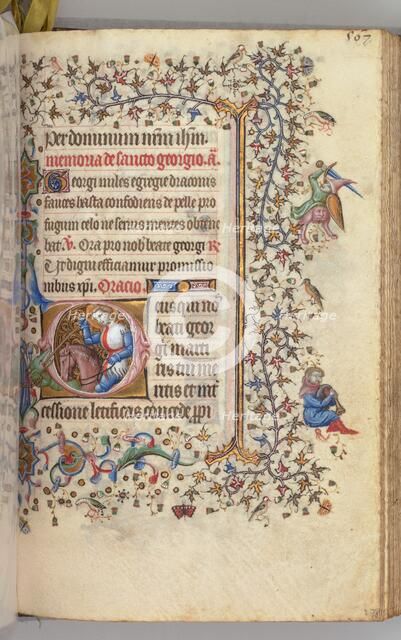 507
Per dominum nrm ihm.
memoria de sancto georgio. a.
Georgi miles egregie draconis
fauces hasta confodiens de pelle pro
fugum celo ne seruis mentes
bat. V. Ora pro nob beate georgi R
Vt digni efficiamur promissio
nibus xpi. Oracio.
Deus qui nos
beati geor
gii marti
ris tui me
ritis et int
cessione letificas concede ppi
Heritage
Heritage
Heritage
Heritage
Heritage
Heritage